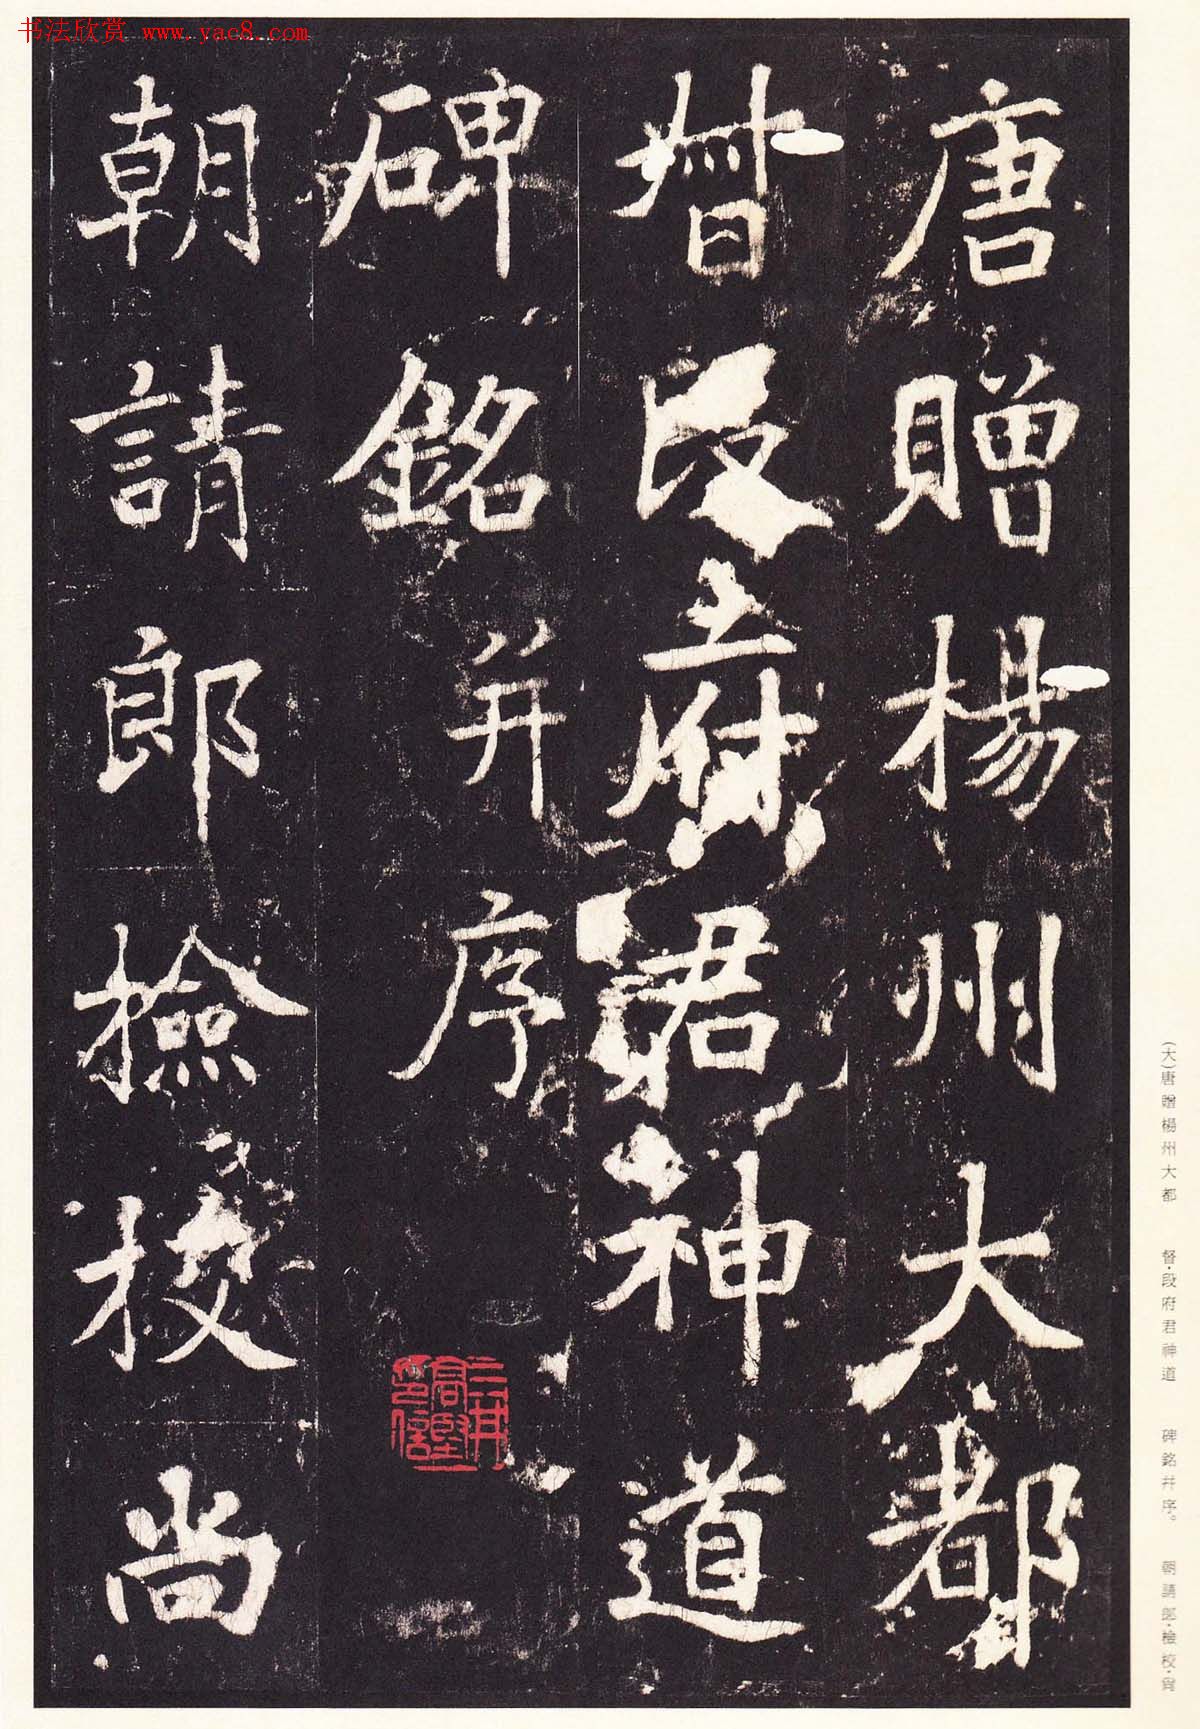 书法欣赏 www.yac8.com
唐贈楊州大都
督段府君神道
碑銘并序
朝請郎撿校尚
(大)唐贈楊州大都 督·段府君神道 碑銘并序。 朝請郎·檢校·尚